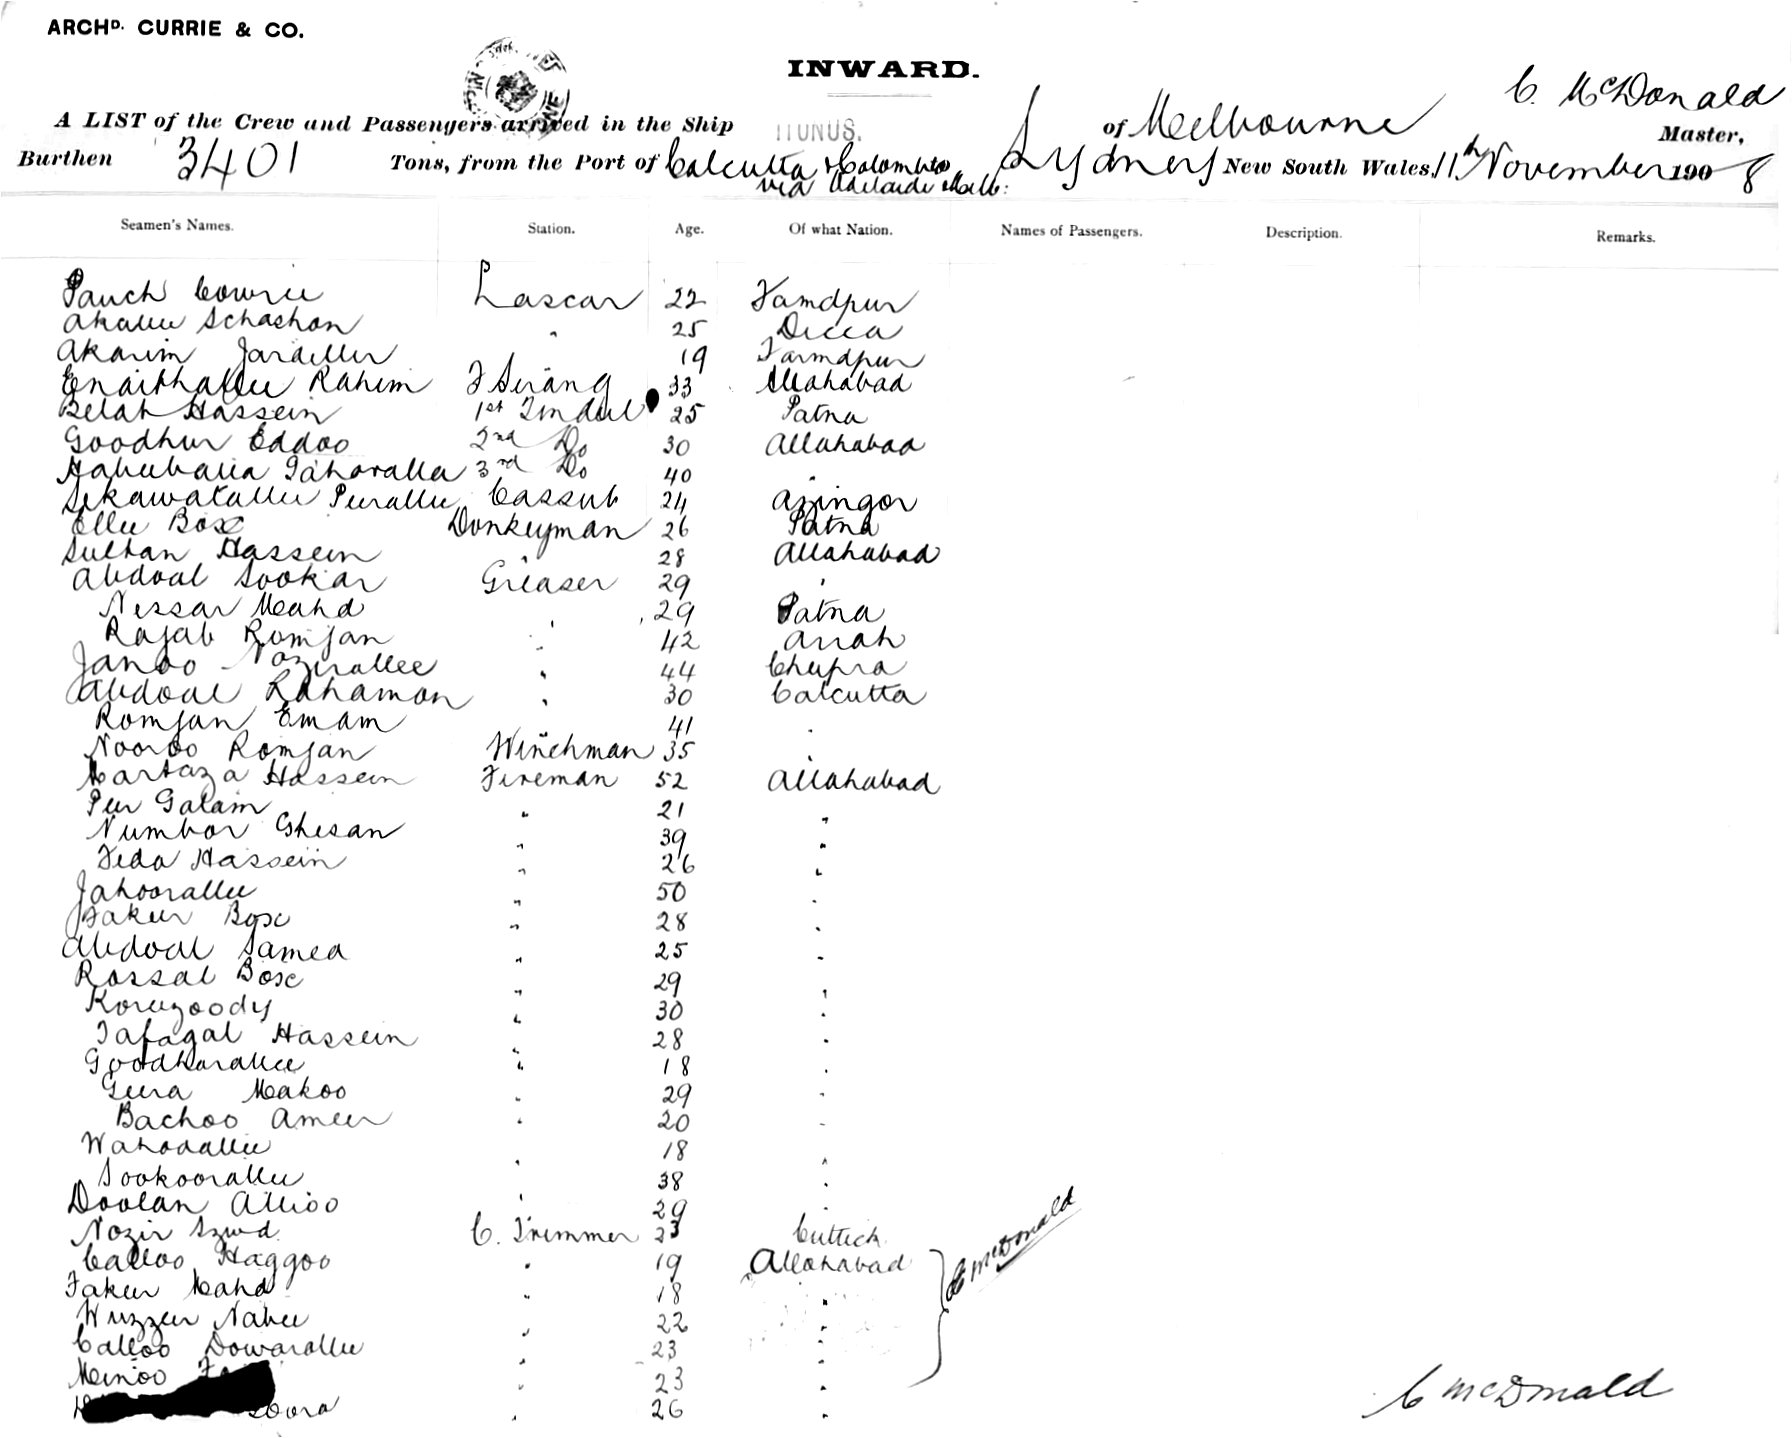 ARCHD. CURRIE & CO.
INWARD.
C. McDonald
A LIST of the Crew and Passengers arrived in the Ship HUNUS. of Melbourne Master,
Burthen 3401 Tons, from the Port of Calcutta & Colombo Sydney New South Wales, 11th November 1908
via Adelaide & Melb:
Seamen's Names. Station. Age. Of what Nation. Names of Passengers. Description. Remarks.
Pauch Cowrie Lascar 22 Famdpur
Akallee Schashon " 25 Dicca
Akarim Jardller 19 Farmdpur
Enaithallee Rahim F Serang 33 Allahabad
Belat Hassein 1st Tindal 25 Patna
Goodhur Eddoo 2nd Do 30 Allahabad
Habubaua Tahoralla 3rd Do 40 "
Sekawatallee Peerallee Cassub 24 Azingor
Ellee Box Donkeyman 26 Patna
Sultan Hassein " 28 Allahabad
Abdoal Sookar Greaser 29 "
Nessar Mahd " 29 Patna
Rajab Romjan " 42 Arrah
Janoo Nazirallee " 44 Chupra
Abdoal Rahaman " 30 Calcutta
Romjan Emam 41 "
Nooroo Romjan Winchman 35 "
Martaza Hassein Fireman 52 Allahabad
Peer Galam " 21 "
Numbor Ghesan " 39 "
Feda Hassein " 26 "
Jahoorallee " 50 "
Fakeer Box " 28 "
Abdoal Samed " 25 "
Rossal Box " 29 "
Koreegoody " 30 "
Tafagal Hassein " 28 "
Goodharallee " 18 "
Geera Makoo " 29 "
Bachoo Ameer " 20 "
Wahodallee " 18 "
Sookoorallee " 38 "
Doolan Allioo " 29 "
Nozir Syud C. Trimmer 23 Cuttick
Calloo Haggoo " 19 Allahabad
C McDonald
Fakeer Mahd " 18 "
Wuzzeer Nabee " 22 "
Calloo Dowarallee " 23 "
Meinoo " 23 "
" 26 "
C McDonald